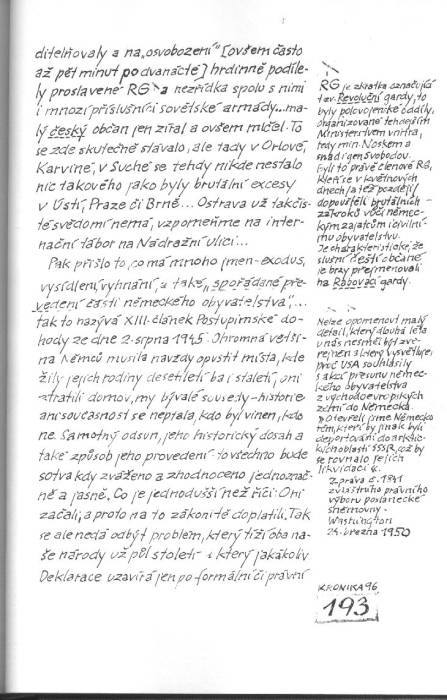 ditelňovaly a na „osvobození" [ovšem často
až pět minut po dvanácté] hrdinně podíle-
ly proslavené RG* a nezřídka spolu s nimi
i mnozí příslušníci sovětské armády... ma-
lý český občan jen zíral a ovšem mlčel. To
se zde skutečně stávalo, ale tady v Orlové,
Karviné, v Suché se tehdy nikde nestalo
nic takového jako byly brutální excesy
v Ústí, Praze či Brně... Ostrava už tak čis-
té svědomí nemá, vzpomeňme na inter-
nační tábor na Nádražní ulici...
Pak přišlo to, co má mnoho jmen - exodus,
vysídlení, vyhnání, a také „spořádané pře-
vedení části německého obyvatelstva"...
tak to nazývá XIII. článek Postupimské do-
hody ze dne 2. srpna 1945. Ohromná větši-
na Němců musila navždy opustit místa, kde
žily jejich rodiny desetiletí ba i staletí, oni
ztratili domov, my bývalé sousedy - historie
ani současnost se neptala, kdo byl vinen, kdo
ne. Samotný odsun, jeho historický dosah a
také způsob jeho provedení - to všechno bude
sotva kdy zváženo a zhodnoceno jednoznač-
ně a jasně. Co je jednodušší než říci: Oni
začali, a proto na to zákonitě doplatili. Tak
se ale nedá odbýt problém, který tíží oba na-
še národy už půl století - a který jakákoliv
Deklarace uzavírá jen po formální či právní
RG je zkratka označující
t.zv. Revoluční gardy, to
byly polovojenské oddíly,
organizované tehdejším
Ministerstvem vnitra,
tedy min. Noskem a
snad i gen. Svobodou.
Byli to právě členové RG,
kteří se v květnových
dnech /a též později/
dopouštěli brutálních
zákroků vůči němec-
kým zajatcům i civilní-
mu obyvatelstvu.
Je charakteristické, že
slušní čeští občané
je brzy přejmenovali
na Rabovací gardy.
Nelze opomenout malý
detail, který dlouhá léta
u nás nesměl být zve-
řejněn a který vysvětluje,
proč USA souhlasily
s akcí přesunu němec-
kého obyvatelstva
z východoevropských
zemí do Německa.
„Otevřeli jsme Německo
těm, kteří by jinak byli
deportováni do arktic-
kých oblastí SSSR, což by
se rovnalo jejich
likvidaci".
Zpráva č. 1841
zvláštního právního
výboru poslanecké
sněmovny -
Washington
24. března 1950
KRONIKA 96
193